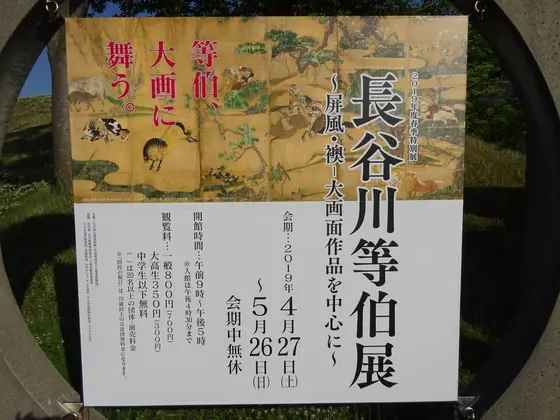 2019年度春季特別展
長谷川等伯展
～屏風・襖－大画面作品を中心に～
等伯、
大画に
舞う。
会期…2019年4月27日（土）
～5月26日（日）
会期中無休
開館時間…午前9時～午後5時
※入館は午後4時30分まで
観覧料…一般800円（700円）
大高生350円（300円）
中学生以下無料
（ ）は20名以上の団体・前売料金